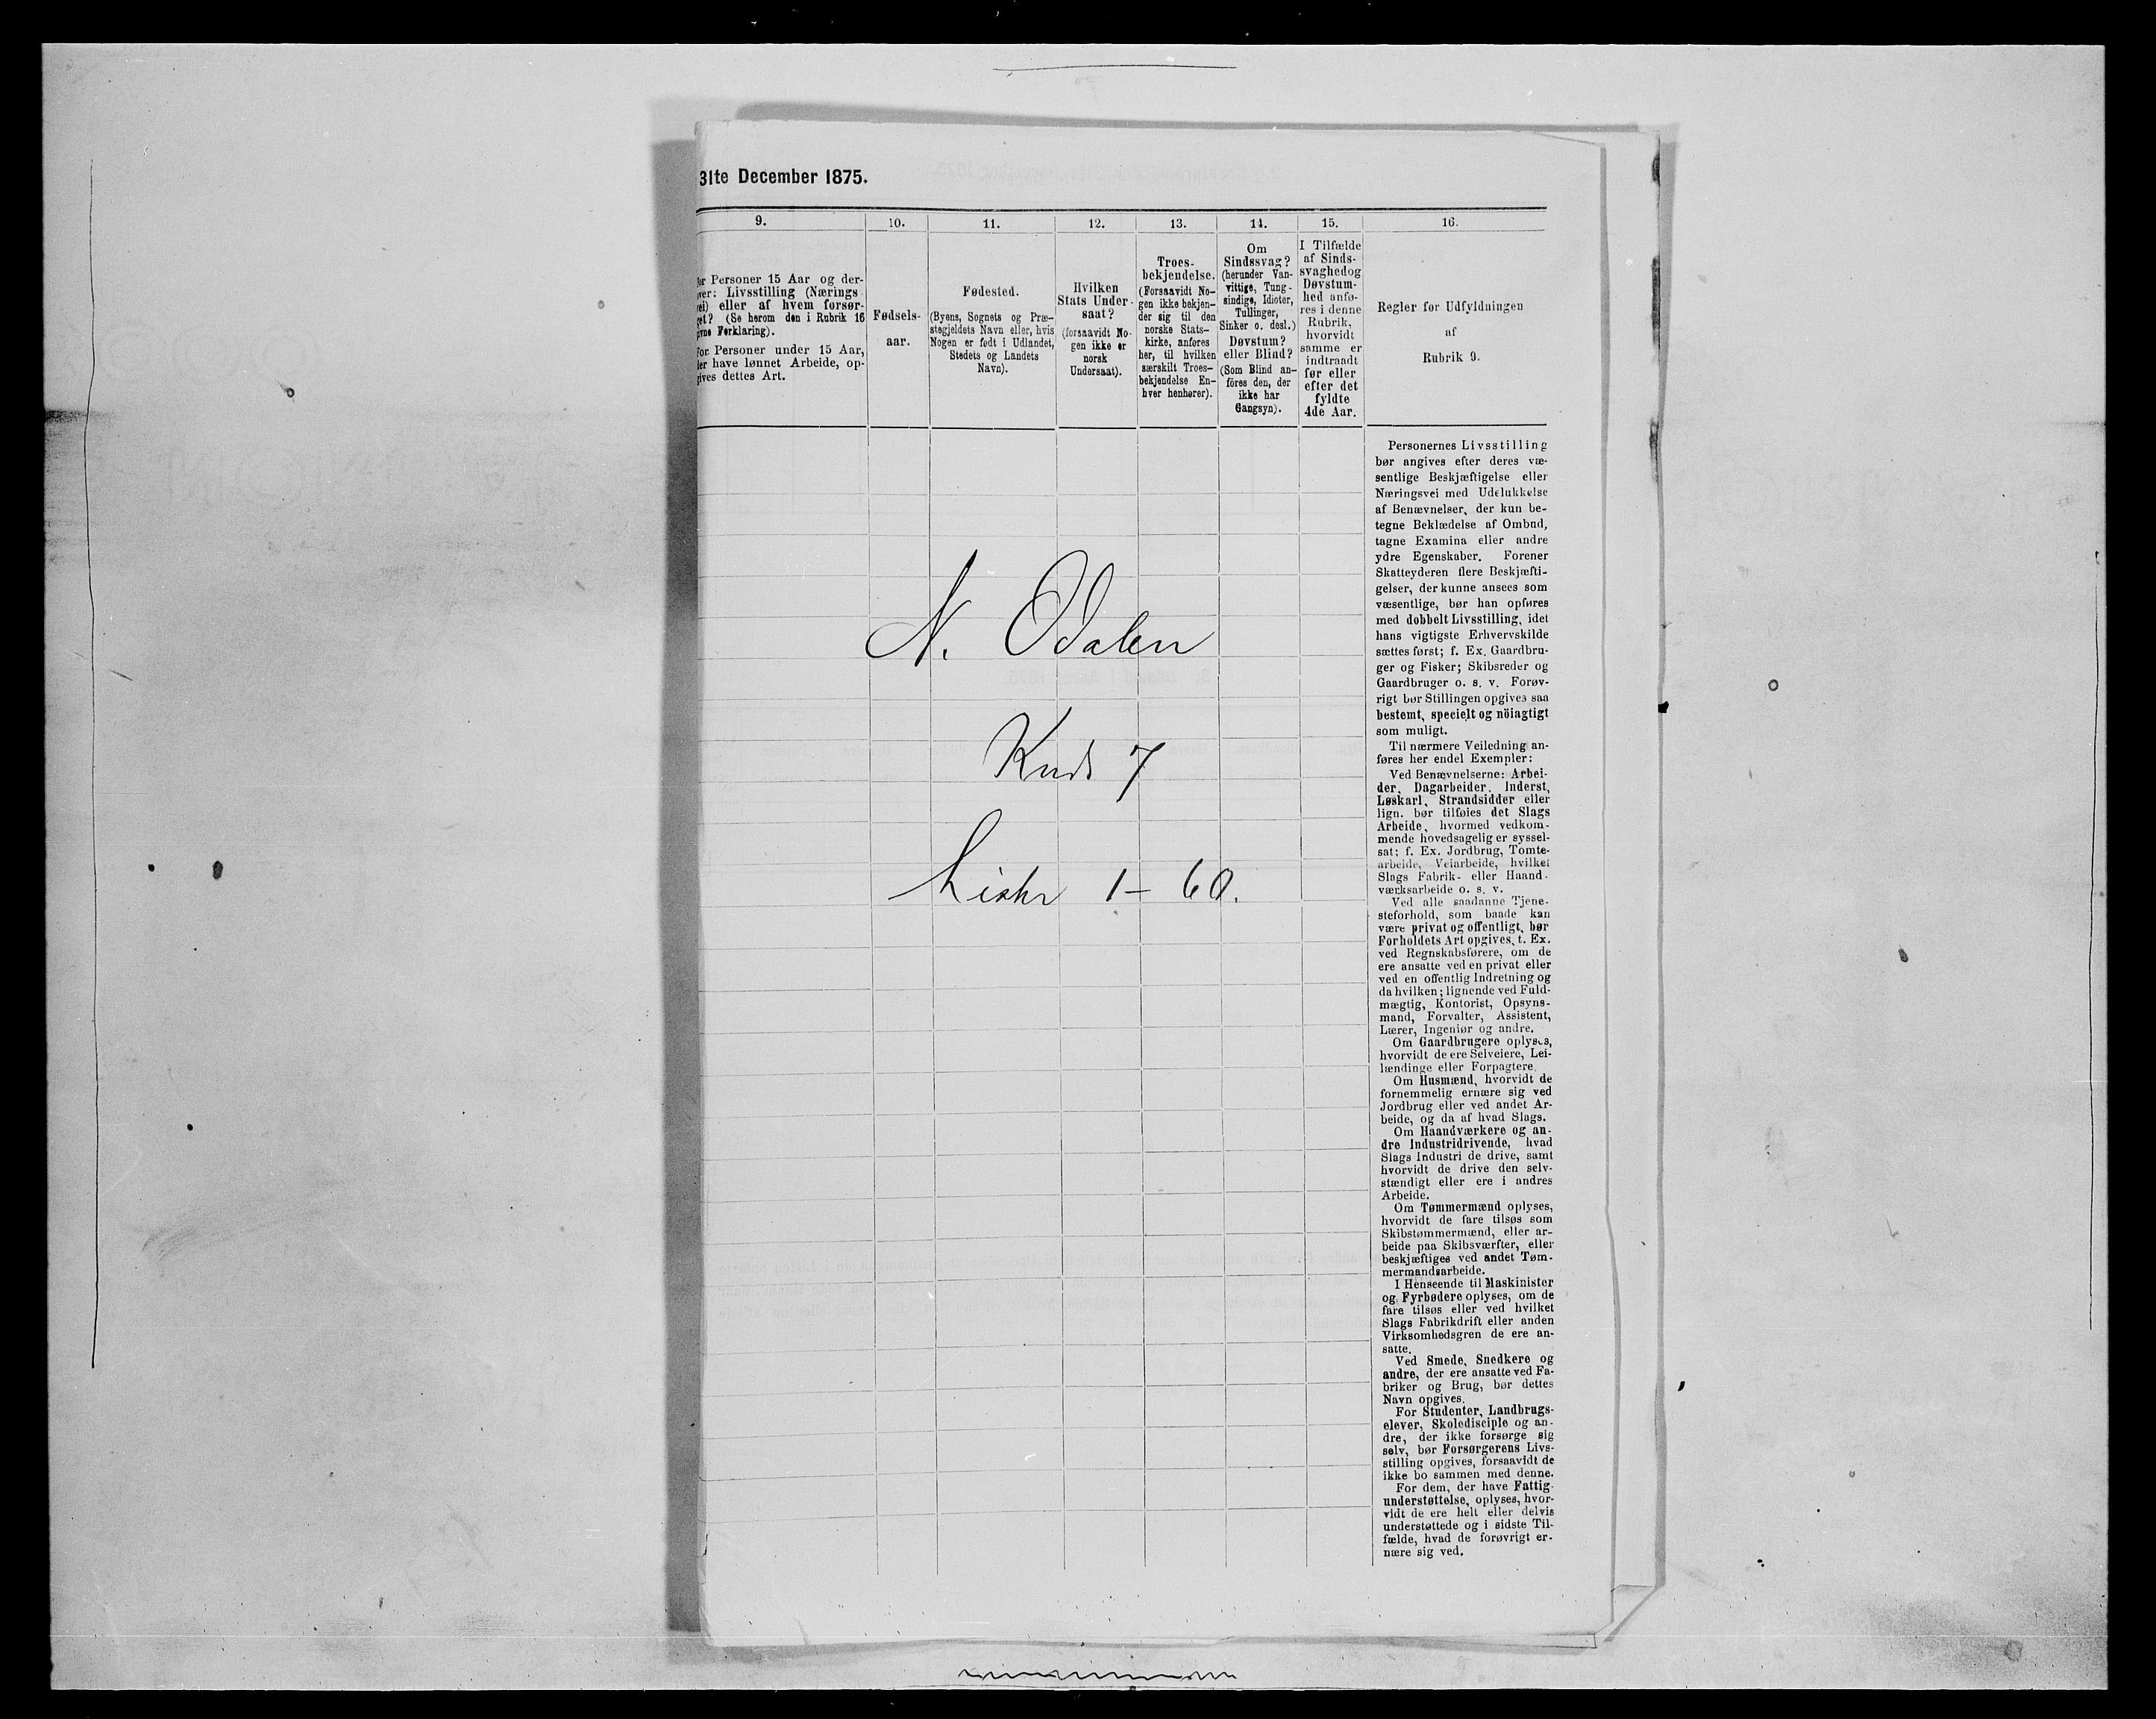 31te December 1875.
9.
10.
11.
12.
13.
14.
15.
16.
Personer 15 Aar og der-
Livsstilling (Nærings
eller af hvem forsør-
(Se herom den i Rubrik 16
Forklaring).
For Personer under 15 Aar,
have lønnet Arbeide, op-
gives dettes Art.
Fødsels-
aar.
Fødested.
(Byens, Sognets og Præ-
stegjeldets Navn eller, hvis
Nogen er født i Udlandet,
Stedets og Landets
Navn).
Hvilken
Stats Under-
saat?
(forsaavidt No-
gen ikke er
norsk
Undersaat).
Troes-
bekjendelse.
(Forsaavidt No-
gen ikke bekjen-
der sig til den
norske Stats-
kirke, anføres
her, til hvilken
særskilt Troes-
bekjendelse En-
hver henhører).
Om
Sindssvag?
(herunder Van-
vittige, Tung-
sindige, Idioter,
Tullinger,
Sinker o. desl.)
Døvstum?
eller Blind?
(Som Blind an-
føres den, der
ikke har
Gangsyn).
I Tilfælde
af Sinds-
svaghed og
Døvstum-
hed anfø-
res i denne
Rubrik,
hvorvidt
samme er
indtraadt
før eller
efter det
fyldte
4de Aar.
Regler for Udfyldningen
af
Rubrik 9.
N. Odalen
Kuds 7
Lister 1 – 60.
Personernes Livsstilling
bør angives efter deres væ-
sentlige Beskjæftigelse eller
Næringsvei med Udelukkelse
af Benævnelser, der kun be-
tegne Beklædelse af Ombud,
tagne Examina eller andre
ydre Egenskaber. Forener
Skatteyderen flere Beskjæfti-
gelser, der kunne ansees som
væsentlige, bør han opføres
med dobbelt Livsstilling, idet
hans vigtigste Erhvervskilde
sættes først; f. Ex. Gaardbru-
ger og Fisker; Skibsreder og
Gaardbruger o. s. v. Forøv-
rigt bør Stillingen opgives saa
bestemt, specielt og nöiagtigt
som muligt.
Til nærmere Veiledning an-
føres her endel Exempler:
Ved Benævnelserne: Arbei-
der, Dagarbeider, Inderst,
Løskarl, Strandsidder eller
lign. bør tilføies det Slags
Arbeide, hvormed vedkom-
mende hovedsagelig er syssel-
sat; f. Ex. Jordbrug, Tomte-
arbeide, Veiarbeide, hvilket
Slags Fabrik- eller Haand-
værksarbeide o. s. v.
Ved alle saadanne Tjene-
steforhold, som baade kan
være privat og offentligt, bør
Forholdets Art opgives, t. Ex.
ved Regnskabsførere, om de
ere ansatte ved en privat eller
ved en offentlig Indretning og
da hvilken; lignende ved Fuld-
mægtig, Kontorist, Opsyns-
mand, Forvalter, Assistent,
Lærer, Ingeniør og andre.
Om Gaardbrugere oplyses,
hvorvidt de ere Selveiere, Lei-
lændinge eller Forpagtere.
Om Husmænd, hvorvidt de
fornemmelig ernære sig ved
Jordbrug eller ved andet Ar-
beide, og da af hvad Slags.
Om Haandværkere og an-
dre Industridrivende, hvad
Slags Industri de drive, samt
hvorvidt de drive den selv-
stændigt eller ere i andres
Arbeide.
Om Tømmermænd oplyses,
hvorvidt de fare tilsøs som
Skibstømmermænd, eller ar-
beide paa Skibsværfter, eller
beskjæftiges ved andet Tøm-
mermandsarbeide.
I Henseende til Maskinister
og Fyrbødere oplyses, om de
fare tilsøs eller ved hvilket
Slags Fabrikdrift eller anden
Virksomhedsgren de ere an-
satte.
Ved Smede, Snedkere og
andre, der ere ansatte ved Fa-
briker og Brug, bør dettes
Navn opgives.
For Studenter, Landbrugs-
elever, Skoledisciple og an-
dre, der ikke forsørge sig
selv, bør Forsørgerens Livs-
stilling opgives, forsaavidt de
ikke bo sammen med denne.
For dem, der have Fattig-
understøttelse, oplyses, hvor-
vidt de ere helt eller delvis
understøttede og i sidste Til-
fælde, hvad de forøvrigt er-
nære sig ved.